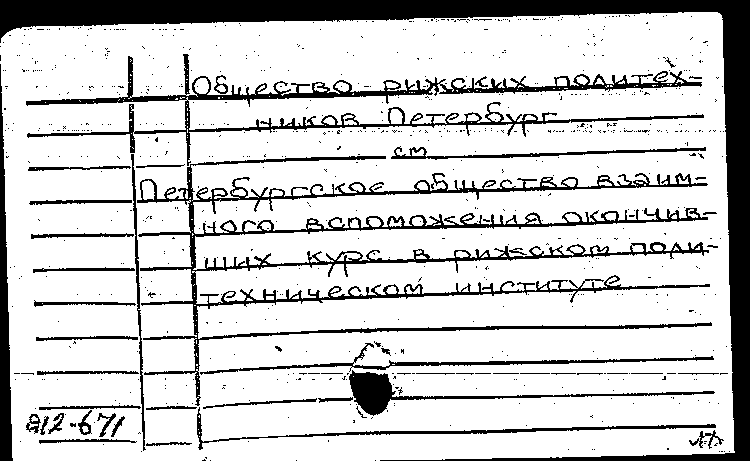 Общество рижских политех-
ников. Петербург
см
Петербургское общество взаим-
ного вспоможения окончив-
ших курс в рижском поли-
техническом институте
212-671